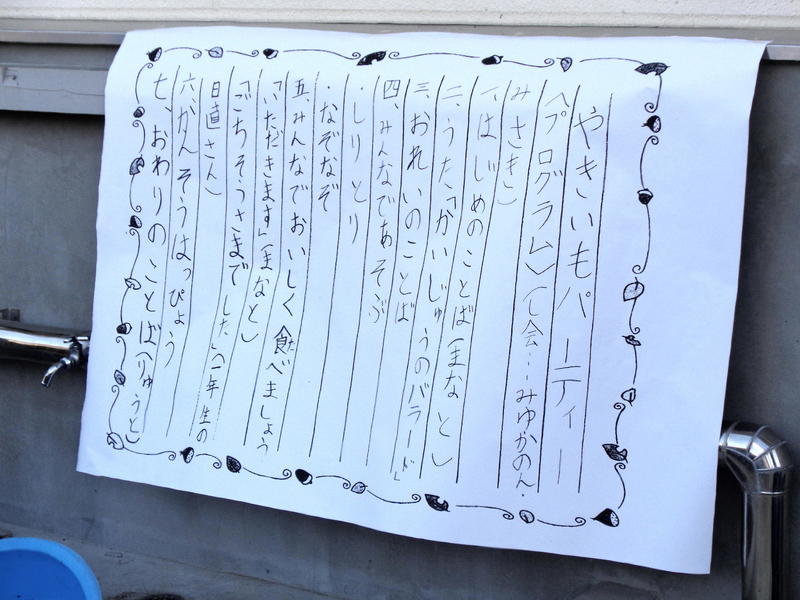 やきいもパーティー
(プログラム)(し会…みゆかのん・
みさき)
一、はじめのことば(まなと)
二、うた「かいじゅうのバラード」
三、おれいのことば
四、みんなであそぶ
・しりとり
・なぞなぞ
五、みんなでおいしく食べましょう
「いただきます」(まなと)
「ごちそうさまでした」(一年生の
日直さん)
六、かんそうはっぴょう
七、おわりのことば(りゅうと)